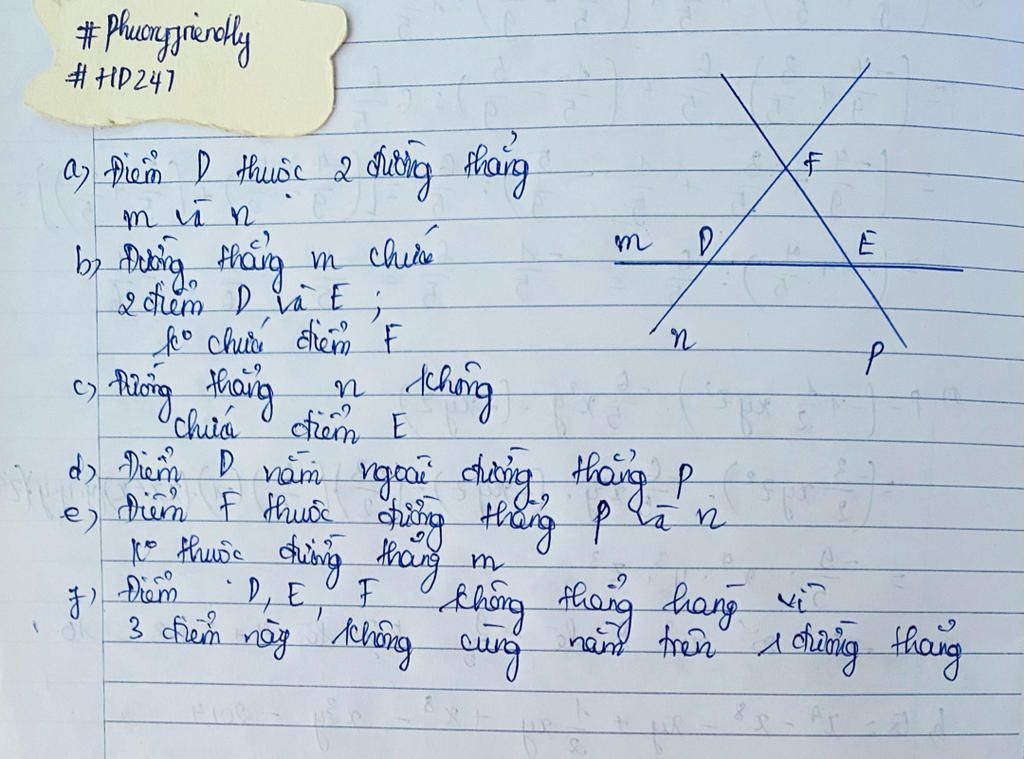 #Phuongfriendly
#HD247
a) Điểm D thuộc 2 đường thẳng
m và n
b) Đường thẳng m chứa
2 điểm D và E ;
ko chứa điểm F
c) Đường thẳng n không
chứa điểm E
d) Điểm D nằm ngoài đường thẳng p
e) Điểm F thuộc đường thẳng p và n
ko thuộc đường thẳng m
f) Điểm D, E, F không thẳng hàng vì
3 điểm này không cùng nằm trên 1 đường thẳng
F
m D E
n
p